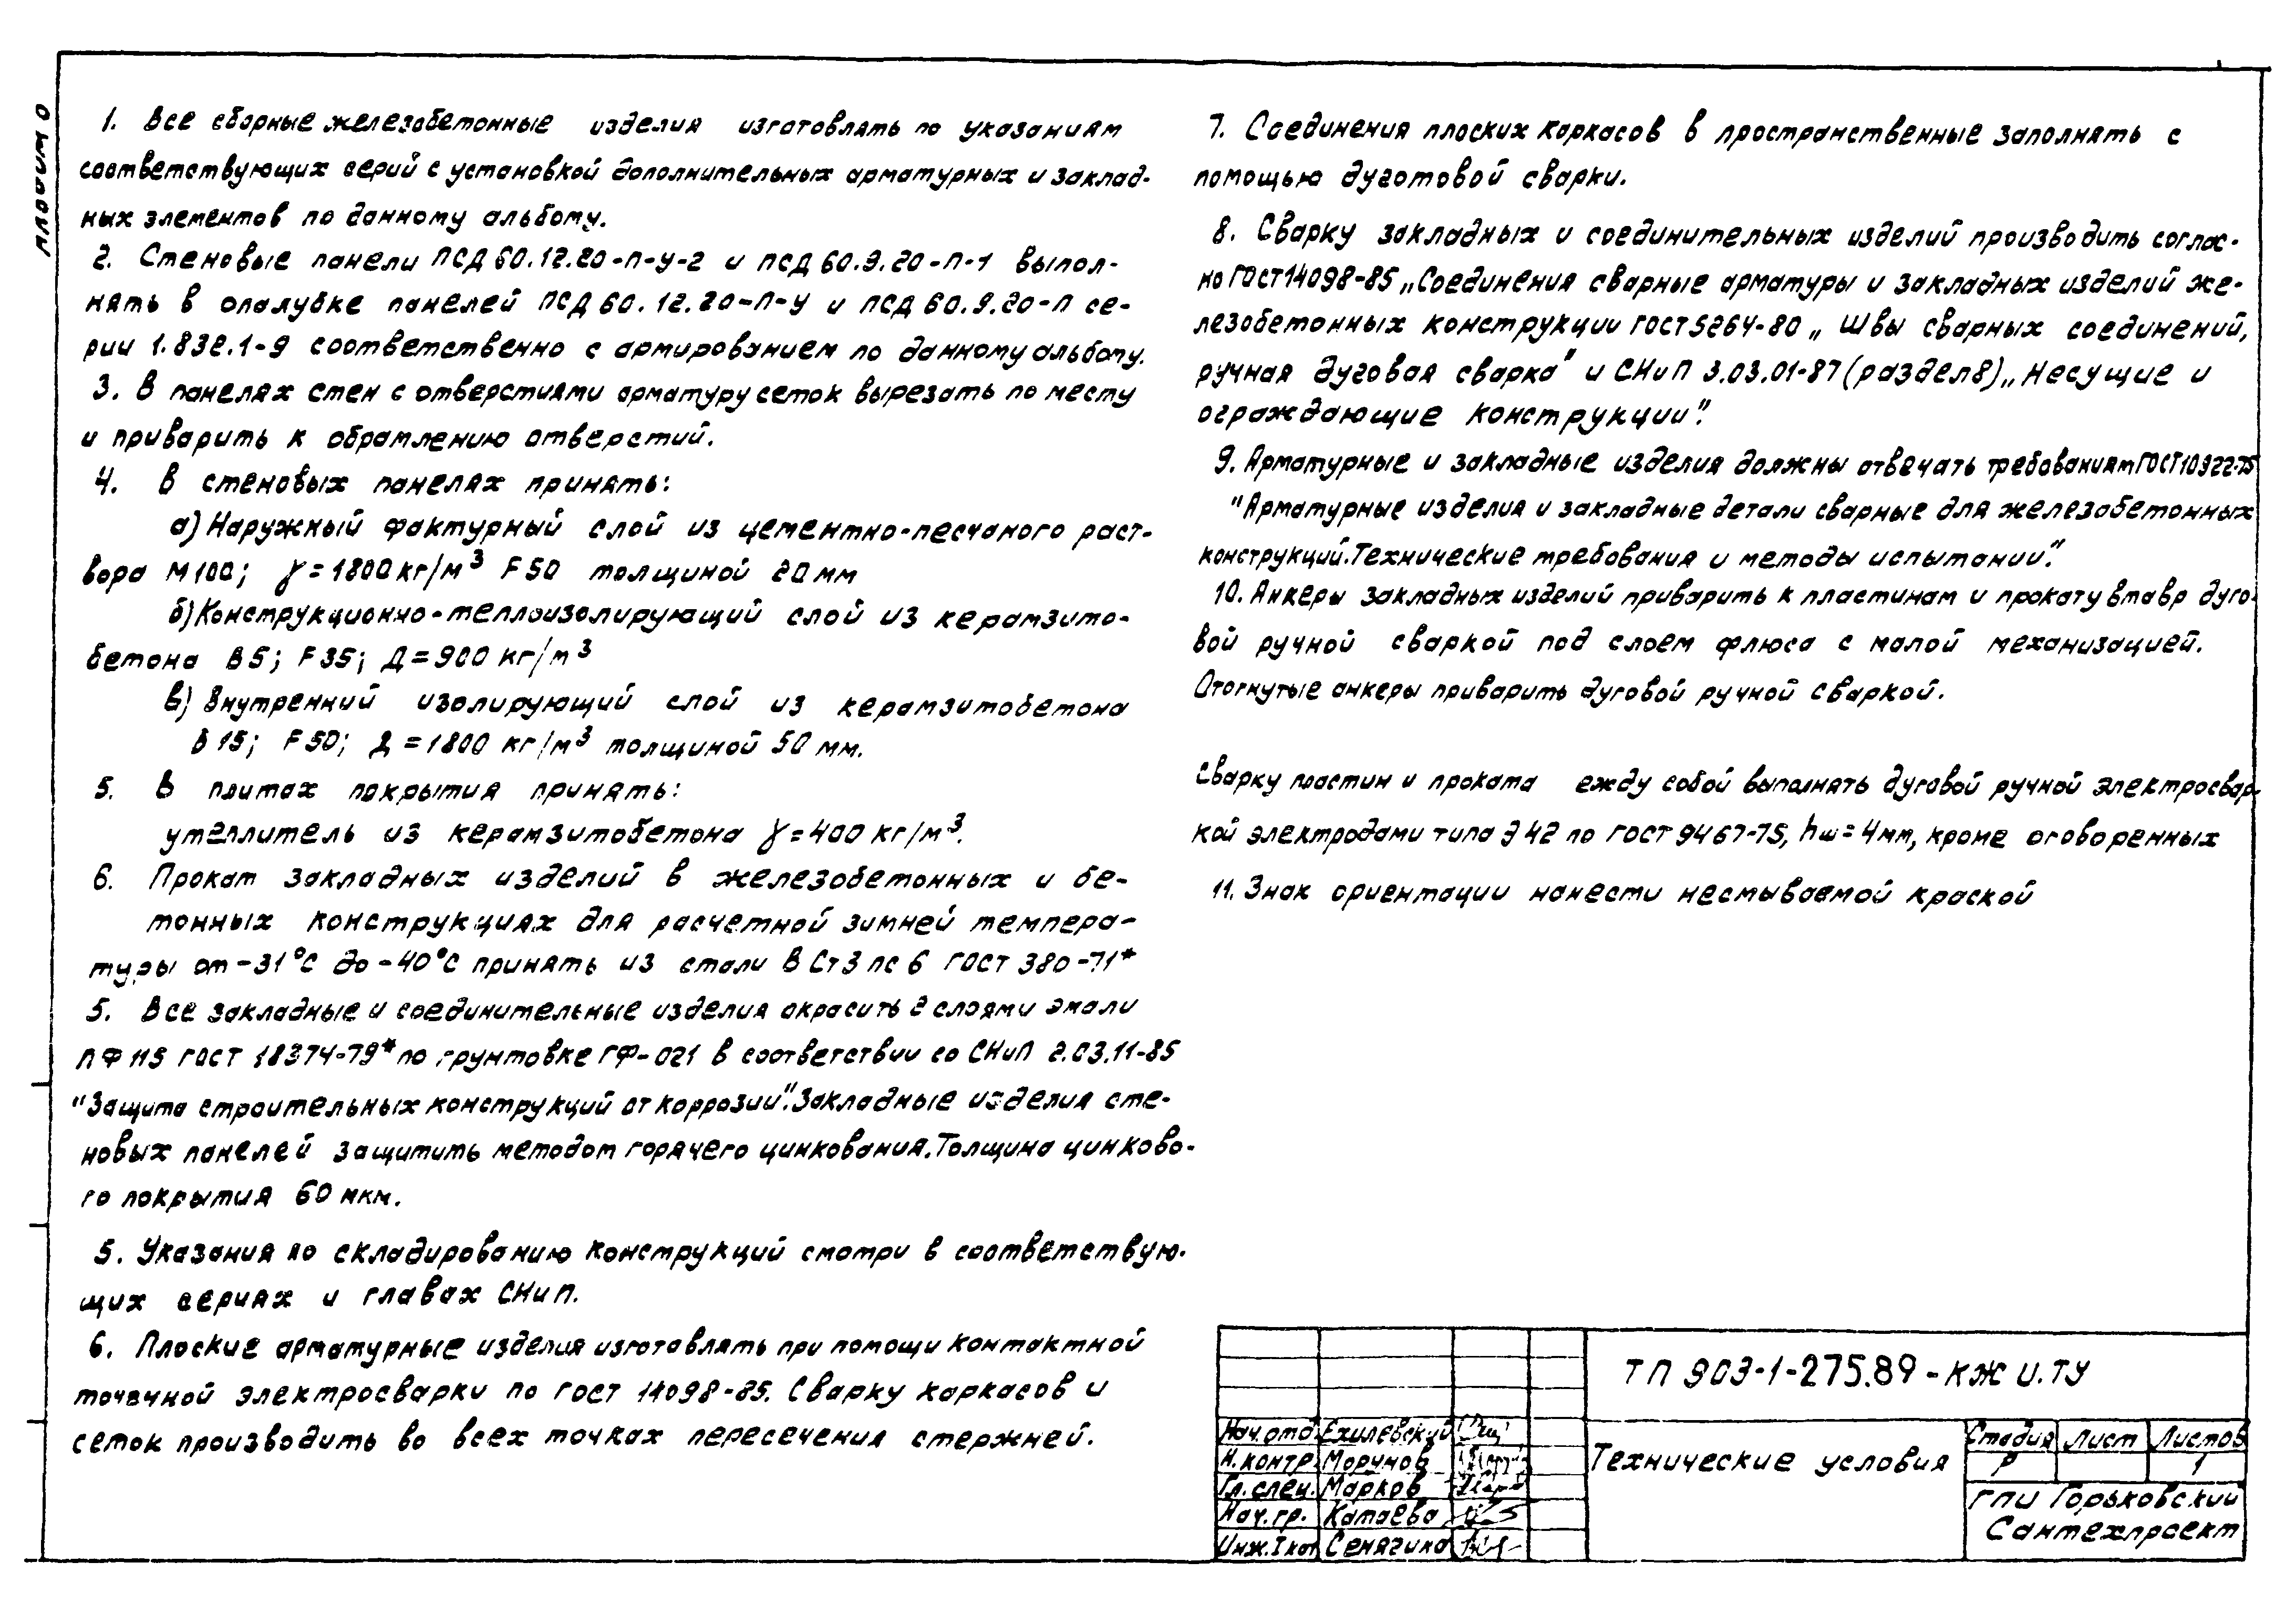 1. Все сборные железобетонные изделия изготовлять по указаниям
соответствующих серий с установкой дополнительных арматурных и заклад-
ных элементов по данному альбому.
2. Стеновые панели ПСД 60.12.20-П-У-2 и ПСД 60.9.20-П-1 выпол-
нять в опалубке панелей ПСД 60.12.20-П-У и ПСД 60.9.20-П се-
рии 1.832.1-9 соответственно с армированием по данному альбому.
3. В панелях стен с отверстиями арматуру сеток вырезать по месту
и приварить к обрамлению отверстий.
4. В стеновых панелях принять:
а) Наружный фактурный слой из цементно-песчаного раст-
вора М100; γ=1800 кг/м³ F50 толщиной 20 мм
б) Конструкционно-теплоизолирующий слой из керамзито-
бетона В5; F35; Д=900 кг/м³
в) Внутренний изолирующий слой из керамзитобетона
В15; F50; Д=1800 кг/м³ толщиной 50 мм.
5. В плитах покрытия принять:
утеплитель из керамзитобетона γ=400 кг/м³.
6. Прокат закладных изделий в железобетонных и бе-
тонных конструкциях для расчетной зимней темпера-
туры от -31°С до -40°С принять из стали ВСт3пс6 ГОСТ 380-71*
5. Все закладные и соединительные изделия окрасить 2 слоями эмали
ПФ 115 ГОСТ 18374-79* по грунтовке ГФ-021 в соответствии со СНиП 2.03.11-85
"Защита строительных конструкций от коррозии". Закладные изделия сте-
новых панелей защитить методом горячего цинкования. Толщина цинково-
го покрытия 60 мкм.
5. Указания по складированию конструкций смотри в соответствую-
щих сериях и главах СНиП.
6. Плоские арматурные изделия изготовлять при помощи контактной
точечной электросварки по ГОСТ 14098-85. Сварку каркасов и
сеток производить во всех точках пересечения стержней.
7. Соединения плоских каркасов в пространственные заполнять с
помощью дуготовой сварки.
8. Сварку закладных и соединительных изделий производить соглас-
но ГОСТ 14098-85 „Соединения сварные арматуры и закладных изделий же-
лезобетонных конструкции ГОСТ 5264-80 „Швы сварных соединений,
ручная дуговая сварка" и СНиП 3.03.01-87 (раздел 8) „Несущие и
ограждающие конструкции".
9. Арматурные и закладные изделия должны отвечать требованиям ГОСТ 10922-75
"Арматурные изделия и закладные детали сварные для железобетонных
конструкций. Технические требования и методы испытании".
10. Анкеры закладных изделий приварить к пластинам и прокату втавр дуго-
вой ручной сваркой под слоем флюса с малой механизацией.
Отогнутые анкеры приварить дуговой ручной сваркой.
Сварку пластин и проката ежду собой выполнять дуговой ручной электросвар-
кой электродами типа Э42 по ГОСТ 9467-75, hш=4мм, кроме оговоренных
11. Знак ориентации нанести несмываемой краской
ТП 903-1-275.89-КЖ И.ТУ
Нач.отд. Ехилевский
Н.контр. Морунов
Гл.спец. Марков
Нач.гр. Катаева
Инж.I кат Сенягина
Технические условия
Стадия Лист Листов
Р 1
ГПИ Горьковский
Сантехпроект